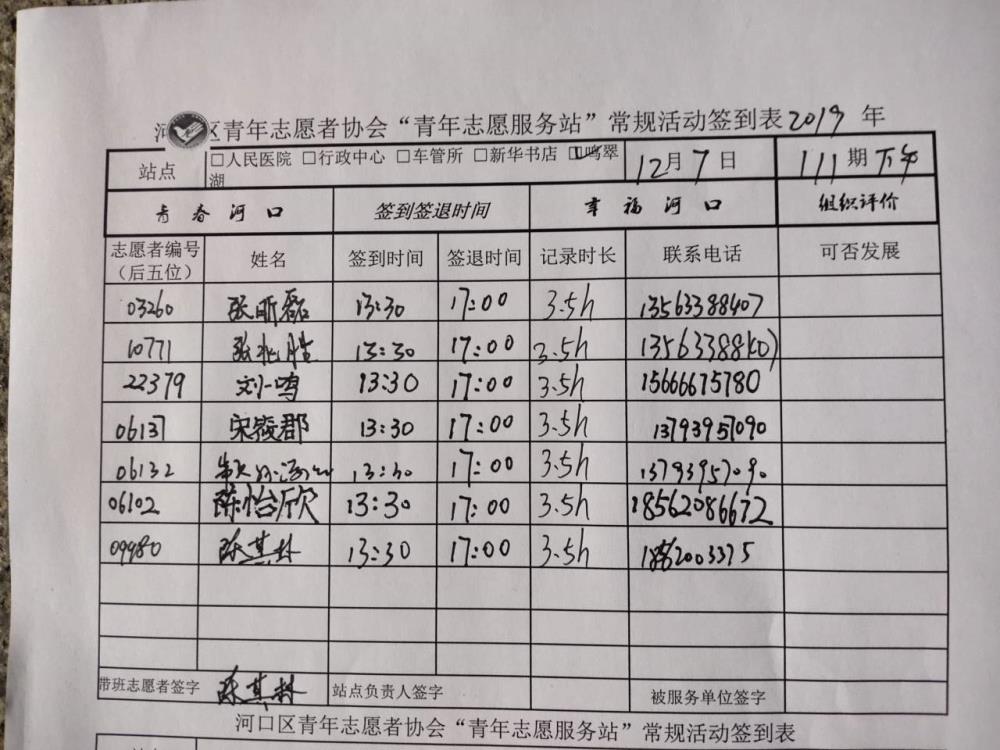 河口区青年志愿者协会“青年志愿服务站”常规活动签到表2019年
站点 □人民医院 □行政中心 □车管所 □新华书店 □鸣翠湖 12月7日 111期下午
青春河口 签到签退时间 幸福河口 组织评价
志愿者编号（后五位） 姓名 签到时间 签退时间 记录时长 联系电话 可否发展
03260 张昕磊 13:30 17:00 3.5h 13563388407
10771 13:30 17:00 3.5h
22379 刘一鸣 13:30 17:00 3.5h 15666675780
06137 宋筱郡 13:30 17:00 3.5h 13793957090
06132 13:30 17:00 3.5h 13793957090
06102 陈怡欣 13:30 17:00 3.5h 18562086672
09980 陈其林 13:30 17:00 3.5h
带班志愿者签字 陈其林 站点负责人签字 被服务单位签字
河口区青年志愿者协会“青年志愿服务站”常规活动签到表